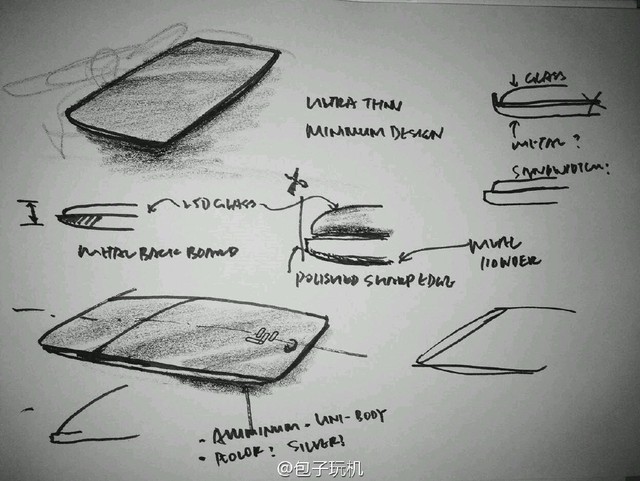 GLASS
ULTRA THIN
MINIMUM DESIGN
METAL?
SANDWITCH?
2.5D GLASS
METAL BACK BOARD
METAL
POWDER
POLISHED SHARP EDGE
- ALUMINUM - UNI-BODY
- COLOR? SILVER?
@包子玩机